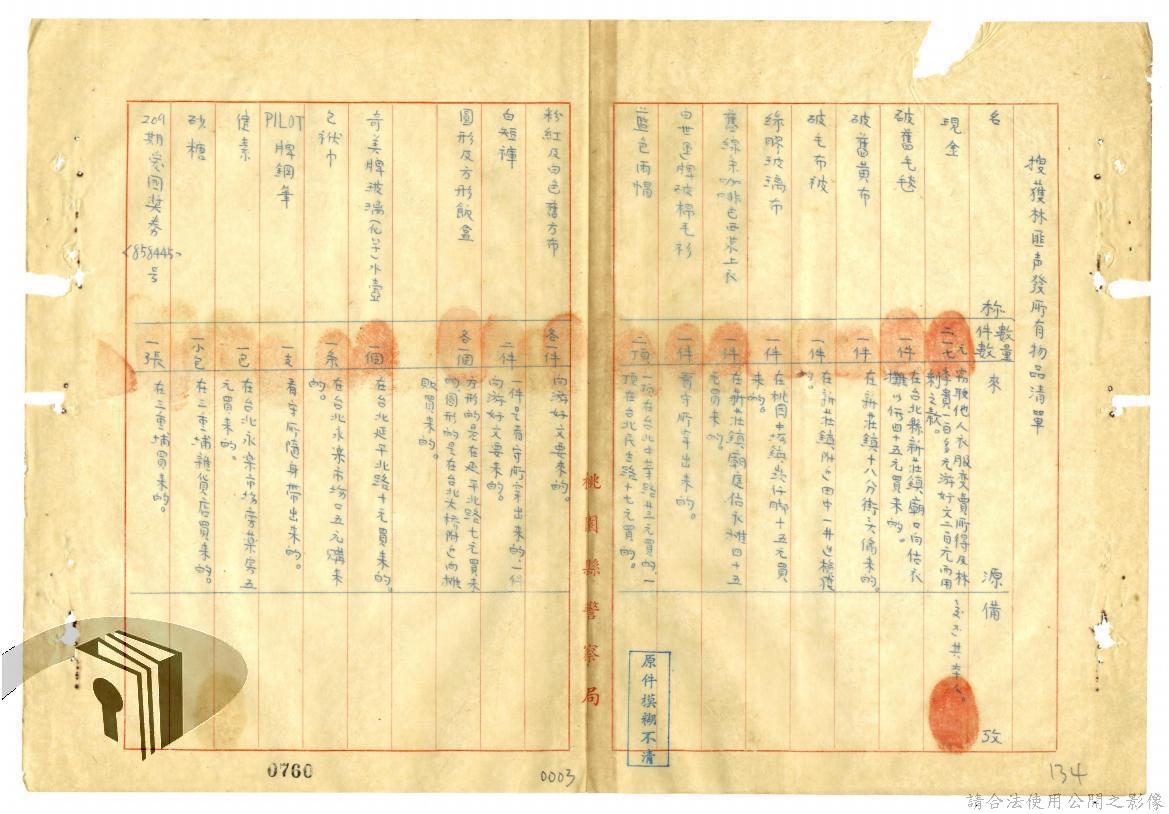 搜獲林匪声發所有物品清單
名　称　件數　數量　來　源　備　攷
現金　二一七元　窃取他人衣服变賣所得及林
李貴一百多元游好文二百元而用
剩之款。
破舊毛毯　一件　在台北縣新壮鎮廟口向估衣
攤以何四十五元買來的。
破舊黃布　一件　在新壮鎮十八分街头偷來的。
破毛布被　一件　在新壮鎮附近田中一井边檢獲
的。
綠膠玻璃布　一件　在桃园中坜鎮崁仔脚十五元買
來的。
舊線条咖啡色西裝上衣　一件　在新壮鎮廟庭估衣攤四十五
元買來的。
白世运牌破棉毛衫　一件　看守所穿出來的。
藍色雨帽　二頂　一頂在台北中華路廿三元買的一
頂在台北民生路十七元買的。
粉紅及白色舊方布　各一件　向游好文要來的。
白短褲　二件　一件是看守所穿出來的，一件
向游好文要來的。
圓形及方形飯盒　各一個　方形的是在延平北路七元買來
的，圓形的是在台北大桥附近向攤
販買來的。
奇美牌玻璃(化学)水壺　一個　在台北延平北路十元買來的。
包袱巾　一条　在台北永楽市場口五元購來
的。
PILOT牌鋼筆　一支　看守所随身帶出來的。
健素　一包　在台北永楽市場旁葯房五
元買來的。
砂糖　一小包　在三重埔雜貨店買來的。
209期爱国獎券<858445>号　一張　在三重埔買來的。
桃園縣警察局
原件模糊不清
0760
0003
134
請合法使用公開之影像